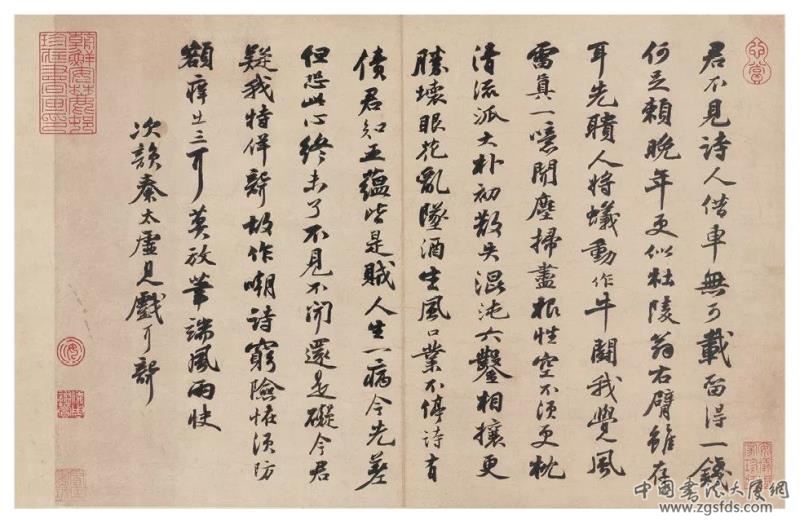 君不見詩人借車無可載留得一錢
何足賴晚年更似杜陵翁右臂雖存
耳先聵人將蟻動作牛鬪我覺風
雷真一噫聞塵掃盡根性空不須更枕
清流派大朴初散失混沌六鑿相攘更
勝壞眼花亂墜酒生風口業不停詩有
債君知五蘊皆是賊人生一病今先差
但恐此心終未了不見不聞還是礙今君
疑我特佯聾故作嘲詩窮險怪須防
額癢出三耳莫放筆端風雨快
次韻秦太虛見戲耳聾
朝鮮安麓邨
珍藏書畫印
中國書法大廈網
www.zgsfds.com